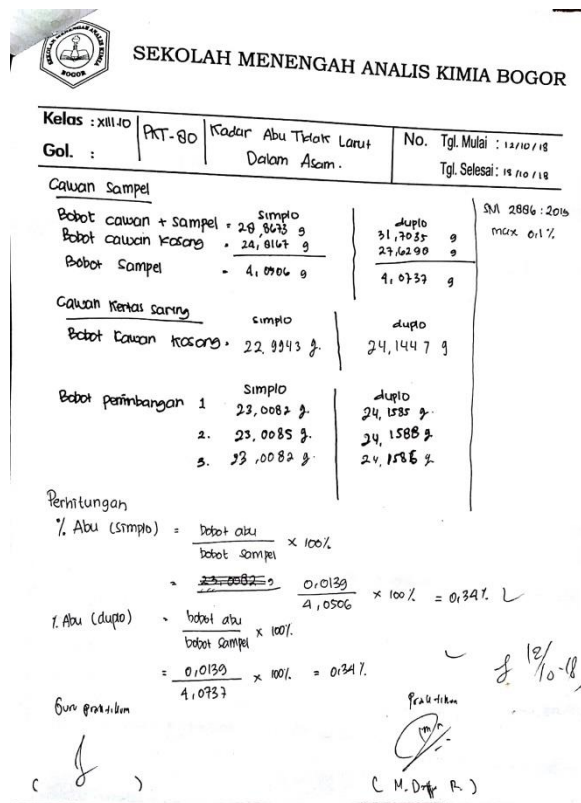 SEKOLAH MENENGAH ANALIS KIMIA BOGOR
BOGOR
Kelas : XIII-10
Gol. :
PKT-80
Kadar Abu Tidak Larut
Dalam Asam.
No. Tgl. Mulai : 12/10/18
Tgl. Selesai : 18/10/18
Cawan Sampel
SNI 2886:2015
max 0,1%
Simplo duplo
Bobot cawan + sampel = 28,8673 g 31,7035 g
Bobot cawan kosong = 24,8167 g 27,6290 g
Bobot Sampel = 4,0506 g 4,0737 g
Cawan Kertas saring
simplo duplo
Bobot Cawan kosong = 22,9943 g. 24,1447 g
Simplo duplo
Bobot penimbangan 1 23,0082 g. 24,1585 g.
2. 23,0085 g. 24,1588 g
3. 23,0082 g. 24,1586 g
Perhitungan
% Abu (simplo) = bobot abu
bobot sampel × 100%
= 23,0082 g 0,0139
4,0506 × 100% = 0,34%
% Abu (duplo) = bobot abu
bobot sampel × 100%.
= 0,0139
4,0737 × 100% = 0,34%
12/10-18
Guru praktikum
Praktikan
( )
( M. R )